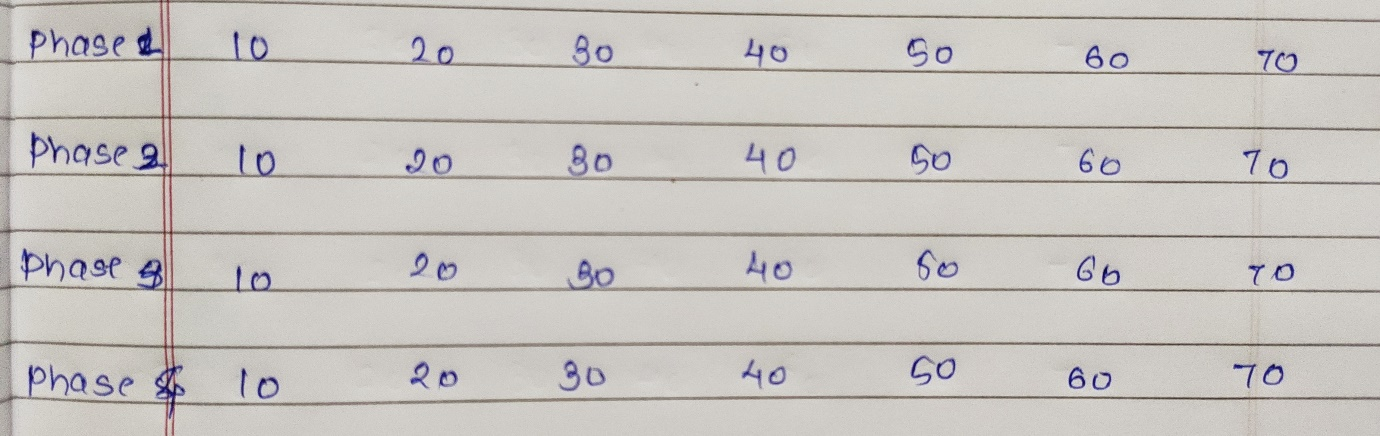 Phase 1 10 20 30 40 50 60 70
Phase 2 10 20 30 40 50 60 70
Phase 3 10 20 30 40 50 60 70
Phase 10 20 30 40 50 60 70